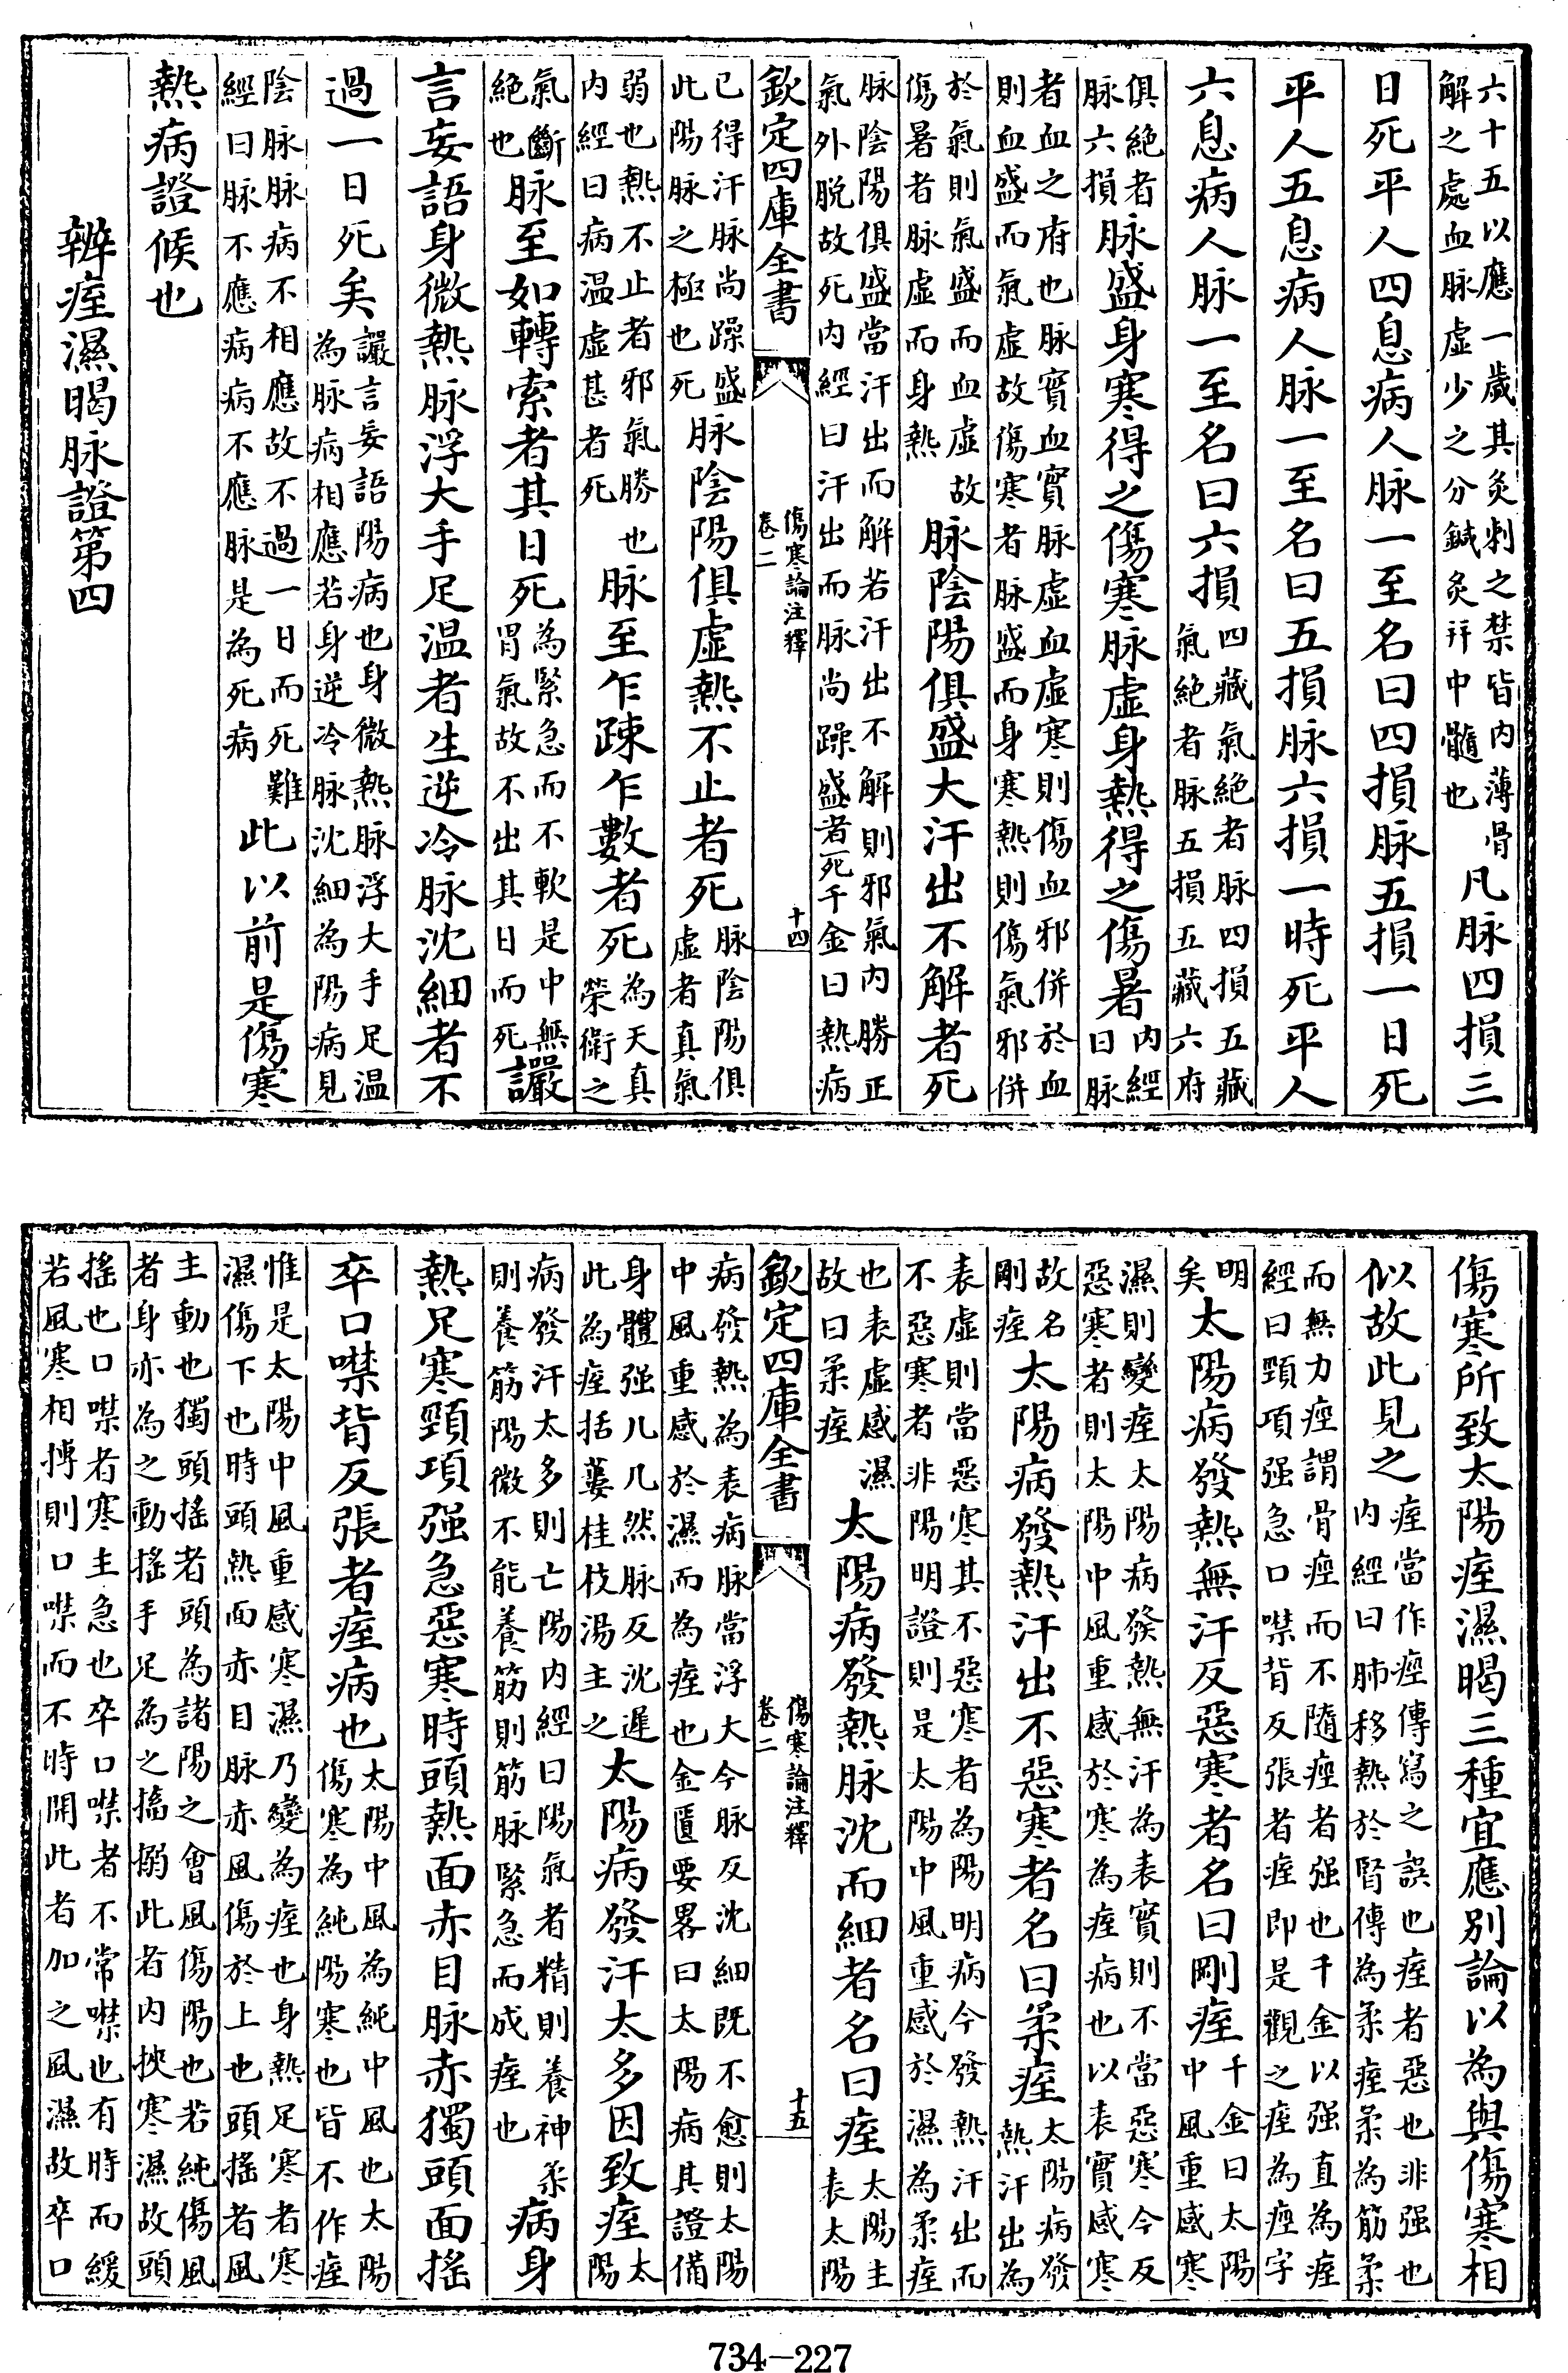 六十五以應一歲其灸刺之禁皆内薄骨
解之處血脉虚少之分鍼灸并中髓也
凡脉四損三
日死平人四息病人脉一至名曰四損脉五損一日死
平人五息病人脉一至名曰五損脉六損一時死平人
六息病人脉一至名曰六損
四藏氣絶者脉四損五藏
氣絶者脉五損五藏六府
俱絶者
脉六損
脉盛身寒得之傷寒脉虚身熱得之傷暑
内經
曰脉
者血之府也脉實血實脉虚血虚寒則傷血邪併於血
則血盛而氣虚故傷寒者脉盛而身寒熱則傷氣邪併
於氣則氣盛而血虚故
傷暑者脉虚而身熱
脉陰陽俱盛大汗出不解者死
脉陰陽俱盛當汗出而解若汗出不解則邪氣内勝正
氣外脱故死内經曰汗出而脉尚躁盛者死千金曰熱病
欽定四庫全書
傷寒論注釋
卷二
十四
已得汗脉尚躁盛
此陽脉之極也死
脉陰陽俱虚熱不止者死
脉陰陽俱
虚者真氣
弱也熱不止者邪氣勝也
内經曰病温虚甚者死
脉至乍疎乍數者死
為天真
榮衛之
氣斷
絶也
脉至如轉索者其日死
為緊急而不軟是中無
胃氣故不出其日而死
讝
言妄語身微熱脉浮大手足温者生逆冷脉沈細者不
過一日死矣
讝言妄語陽病也身微熱脉浮大手足温
為脉病相應若身逆冷脉沈細為陽病見
陰脉脉病不相應故不過一日而死難
經曰脉不應病病不應脉是為死病
此以前是傷寒
熱病證候也
辨痓濕暍脉證第四
傷寒所致太陽痓濕暍三種宜應别論以為與傷寒相
似故此見之
痓當作痙傳寫之誤也痓者惡也非强也
内經曰肺移熱於腎傳為柔痓柔為筋柔
而無力痙謂骨痙而不隨痙者强也千金以强直為痓
經曰頸項强急口噤背反張者痓即是觀之痓為痙字
明
矣
太陽病發熱無汗反惡寒者名曰剛痓
千金曰太陽
中風重感寒
濕則變痓太陽病發熱無汗為表實則不當惡寒今反
惡寒者則太陽中風重感於寒為痓病也以表實感寒
故名
剛痓
太陽病發熱汗出不惡寒者名曰柔痓
太陽病發
熱汗出為
表虚則當惡寒其不惡寒者為陽明病今發熱汗出而
不惡寒者非陽明證則是太陽中風重感於濕為柔痓
也表虚感濕
故曰柔痓
太陽病發熱脉沈而細者名曰痓
太陽主
表太陽
欽定四庫全書
傷寒論注釋
卷二
十五
病發熱為表病脉當浮大今脉反沈細既不愈則太陽
中風重感於濕而為痓也金匱要畧曰太陽病其證備
身體强几几然脉反沈遲
此為痓括蔞桂枝湯主之
太陽病發汗太多因致痓
太
陽
病發汗太多則亡陽内經曰陽氣者精則養神柔
則養筋陽微不能養筋則筋脉緊急而成痓也
病身
熱足寒頸項强急惡寒時頭熱面赤目脉赤獨頭面摇
卒口噤背反張者痓病也
太陽中風為純中風也太陽
傷寒為純陽寒也皆不作痓
惟是太陽中風重感寒濕乃變為痓也身熱足寒者寒
濕傷下也時頭熱面赤目脉赤風傷於上也頭摇者風
主動也獨頭摇者頭為諸陽之會風傷陽也若純傷風
者身亦為之動摇手足為之搐搦此者内挾寒濕故頭
摇也口噤者寒主急也卒口噤者不常噤也有時而緩
若風寒相搏則口噤而不時開此者加之風濕故卒口
734-227